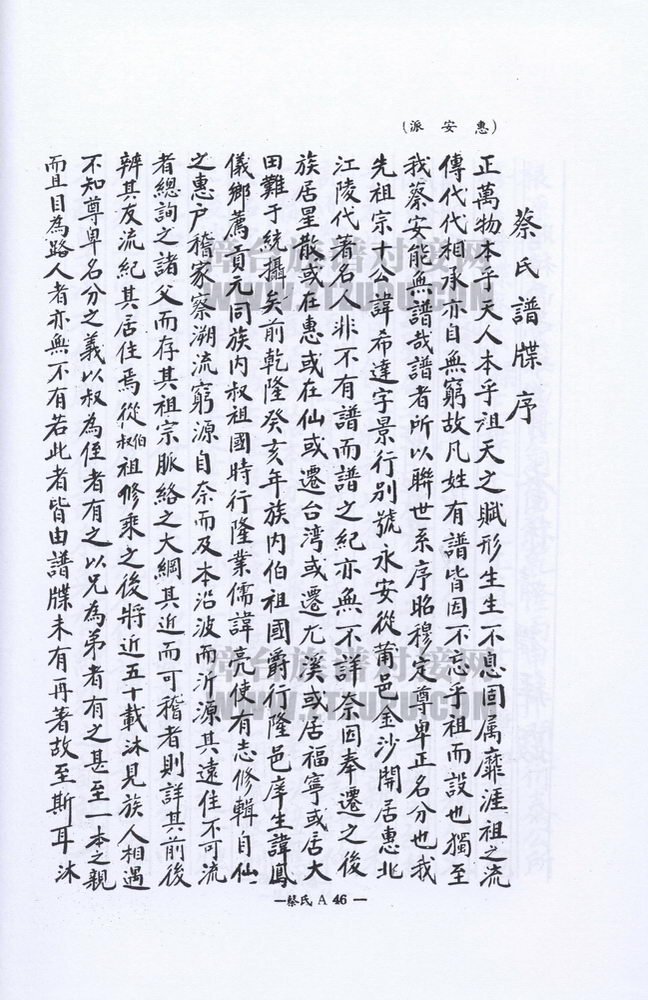 (惠安派)
蔡氏譜牒序
正萬物本乎天人本乎祖天之賦形生生不息固属靡涯祖之流
傳代代相承亦自無窮故凡姓有譜皆因不忘乎祖而設也獨至
我蔡安能無譜哉譜者所以聯世系序昭穆定尊卑正名分也我
先祖宗十公諱希達字景行別號永安從莆邑金沙開居惠北
江陵代著名人非不有譜而譜之紀亦無不詳奈因奉遷之後
族居星散或在惠或在仙或遷台湾或遷尤溪或居福寧或居大
田難于統攝矣前乾隆癸亥年族内伯祖國爵行隆邑庠生諱鳳
儀鄉薦貢元同族内叔祖國時行隆業儒諱亮使有志修輯自仙
之惠户稽家察溯流窮源自奈而及本沿波而沂源其遠住不可流
者總詢之諸父而存其祖宗脈絡之大綱其近而可稽者則詳其前後
辨其友流紀其居住焉從伯叔祖修乘之後將近五十載沐見族人相遇
不知尊卑名分之義以叔為侄者有之以兄為弟者有之甚至一本之親
而且目為路人者亦無不有若此者皆由譜牒未有再著故至斯耳沐
—蔡氏 A 46—
漳台族谱对接网
WWW.ZTZUPU.COM
漳台族谱对接网
WWW.ZTZUPU.COM